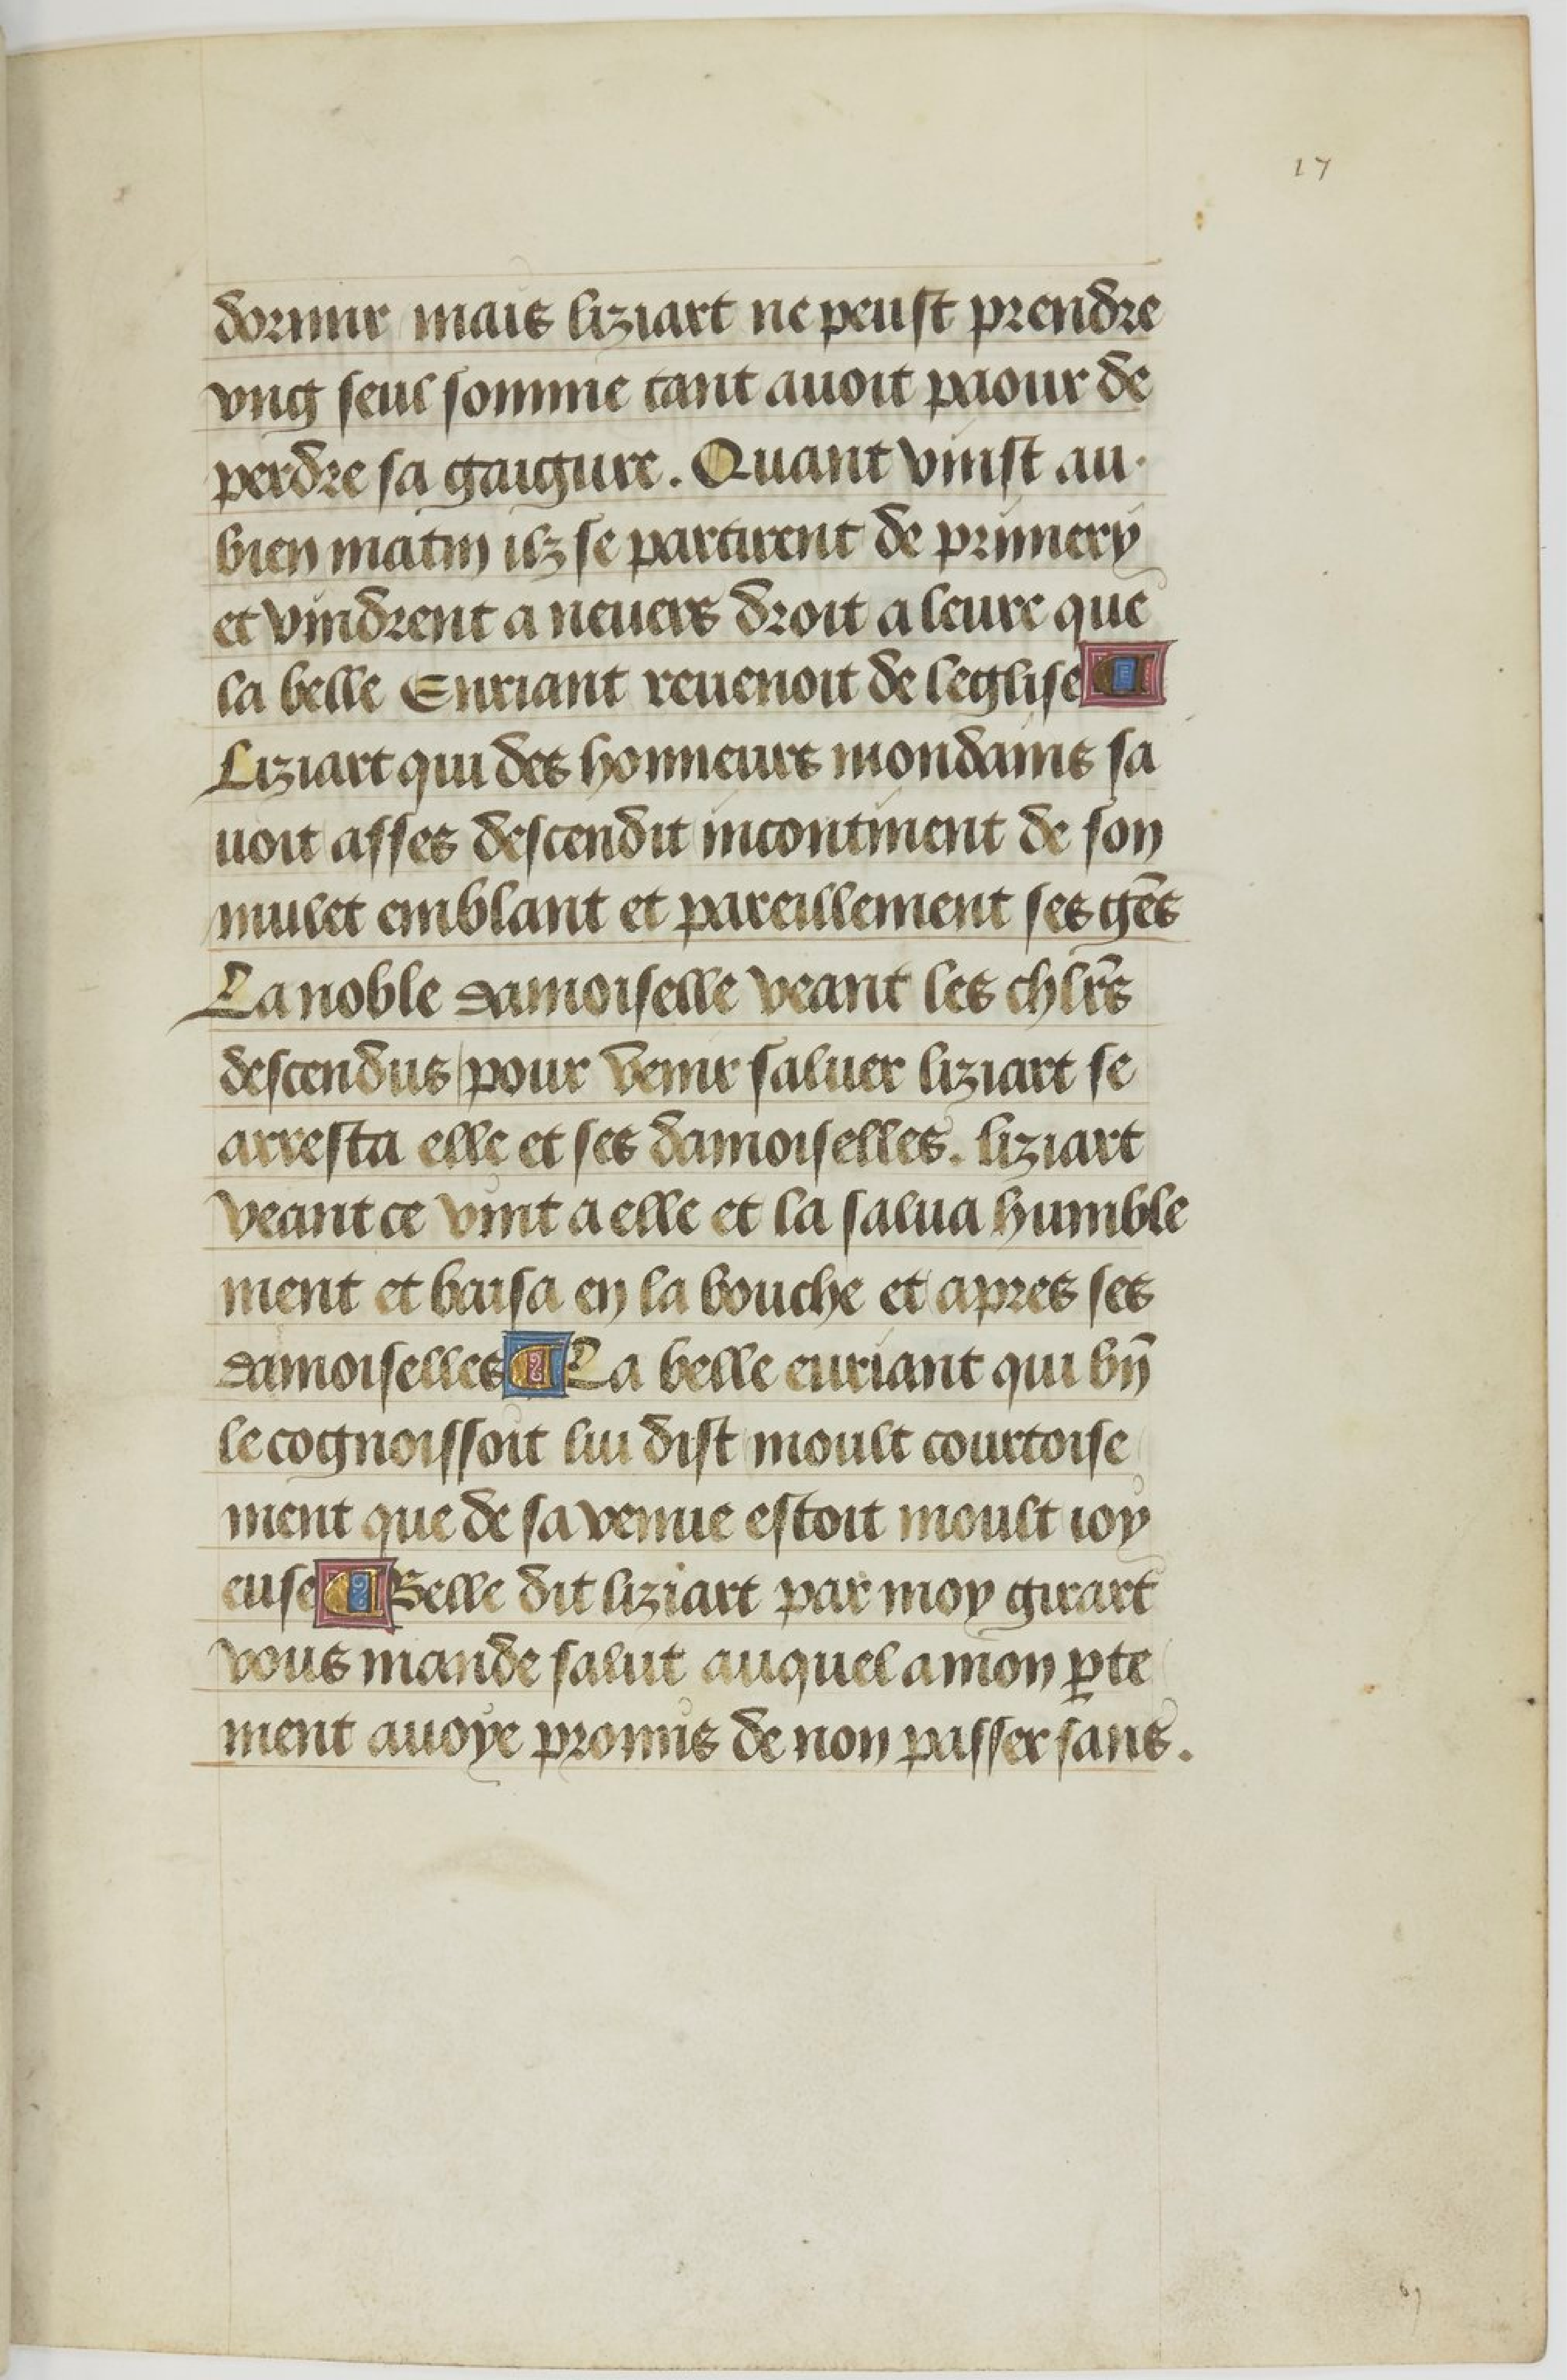 17
dormir mais liziart ne peust prendre
vng seul somme tant auoit paour de
perdre sa gaigure. Quant vinst au
bien matin ilz se partirent de primery
et vindrent a neuers droit a leure que
la belle Euriant reuenoit de leglise ¶
Liziart qui des honneurs mondains sa
uoit asses descendit incontinent de son
mulet emblant et pareillement ses gẽs
La noble damoiselle veant les chlr̃s
descendus pour venir saluer liziart se
arresta elle et ses damoiselles. liziart
veant ce vint a elle et la salua humble
ment et baisa en la bouche et apres ses
damoiselles ¶ La belle euriant qui bn̄
le cognoissoit lui dist moult courtoise
ment que de sa venue estoit moult ioy
euse ¶ Belle dit liziart par moy girart
vous mande salut auquel a mon ꝑte
ment auoye promis de non passer sans.